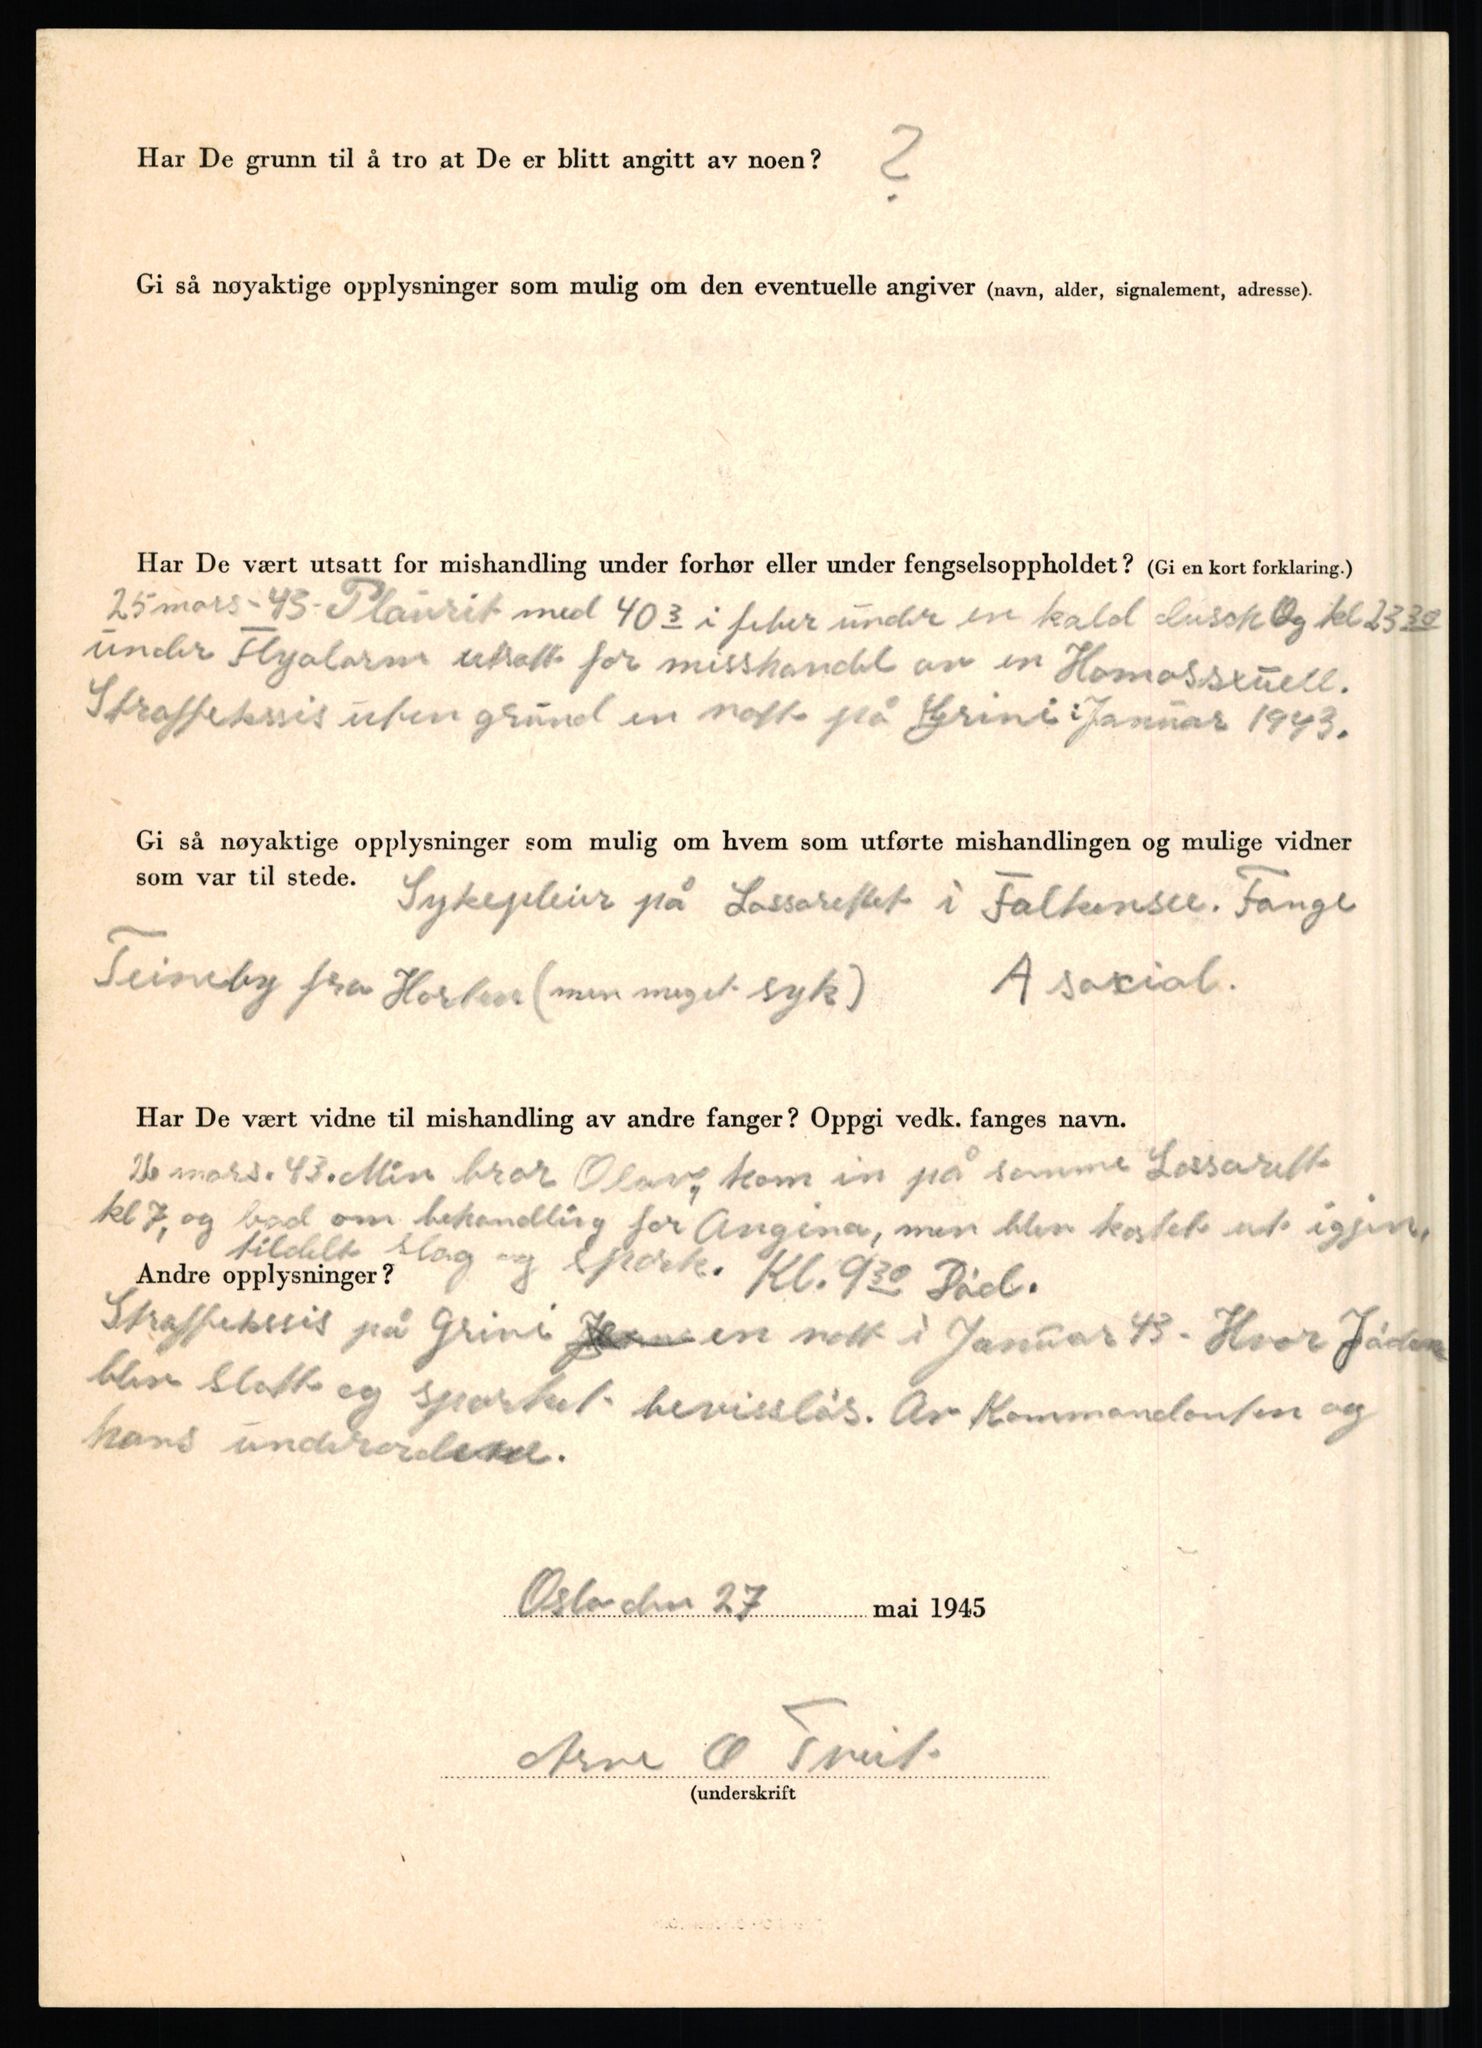 Har De grunn til å tro at De er blitt angitt av noen? ?
Gi så nøyaktige opplysninger som mulig om den eventuelle angiver (navn, alder, signalement, adresse).
Har De vært utsatt for mishandling under forhør eller under fengselsoppholdet? (Gi en kort forklaring.)
25 mars - 43 - Plävrit med 40 3 i feber ünder en kald dusch Og kl 23 30
ünder Flyalarm utsatt for misshandel av en Homossxüell.
Straffekssis uten gründ en natt på Grini i Janüar 1943.
Gi så nøyaktige opplysninger som mulig om hvem som utførte mishandlingen og mulige vidner
som var til stede. Sykepleier på Lassarettet i Falkensee. Fange
Teineby fra Horten (men meget syk) Asosial.
Har De vært vidne til mishandling av andre fanger? Oppgi vedk. fanges navn.
26 mars. 43. Min bror Olav, kom in på samme Lassarett
kl 7, og bad om behandling for Angina, men blev kastet ut igjen,
tildelt slag og spark. Kl. 9 30 Död.
Andre opplysninger?
Straffekssis på Grini en natt i Janüar 43 - Hvor Jöden
blev slått og sparket bevisslös. Av Kommandanten og
hans underordene.
Oslo den 27 mai 1945
Arne O Tveit
(underskrift